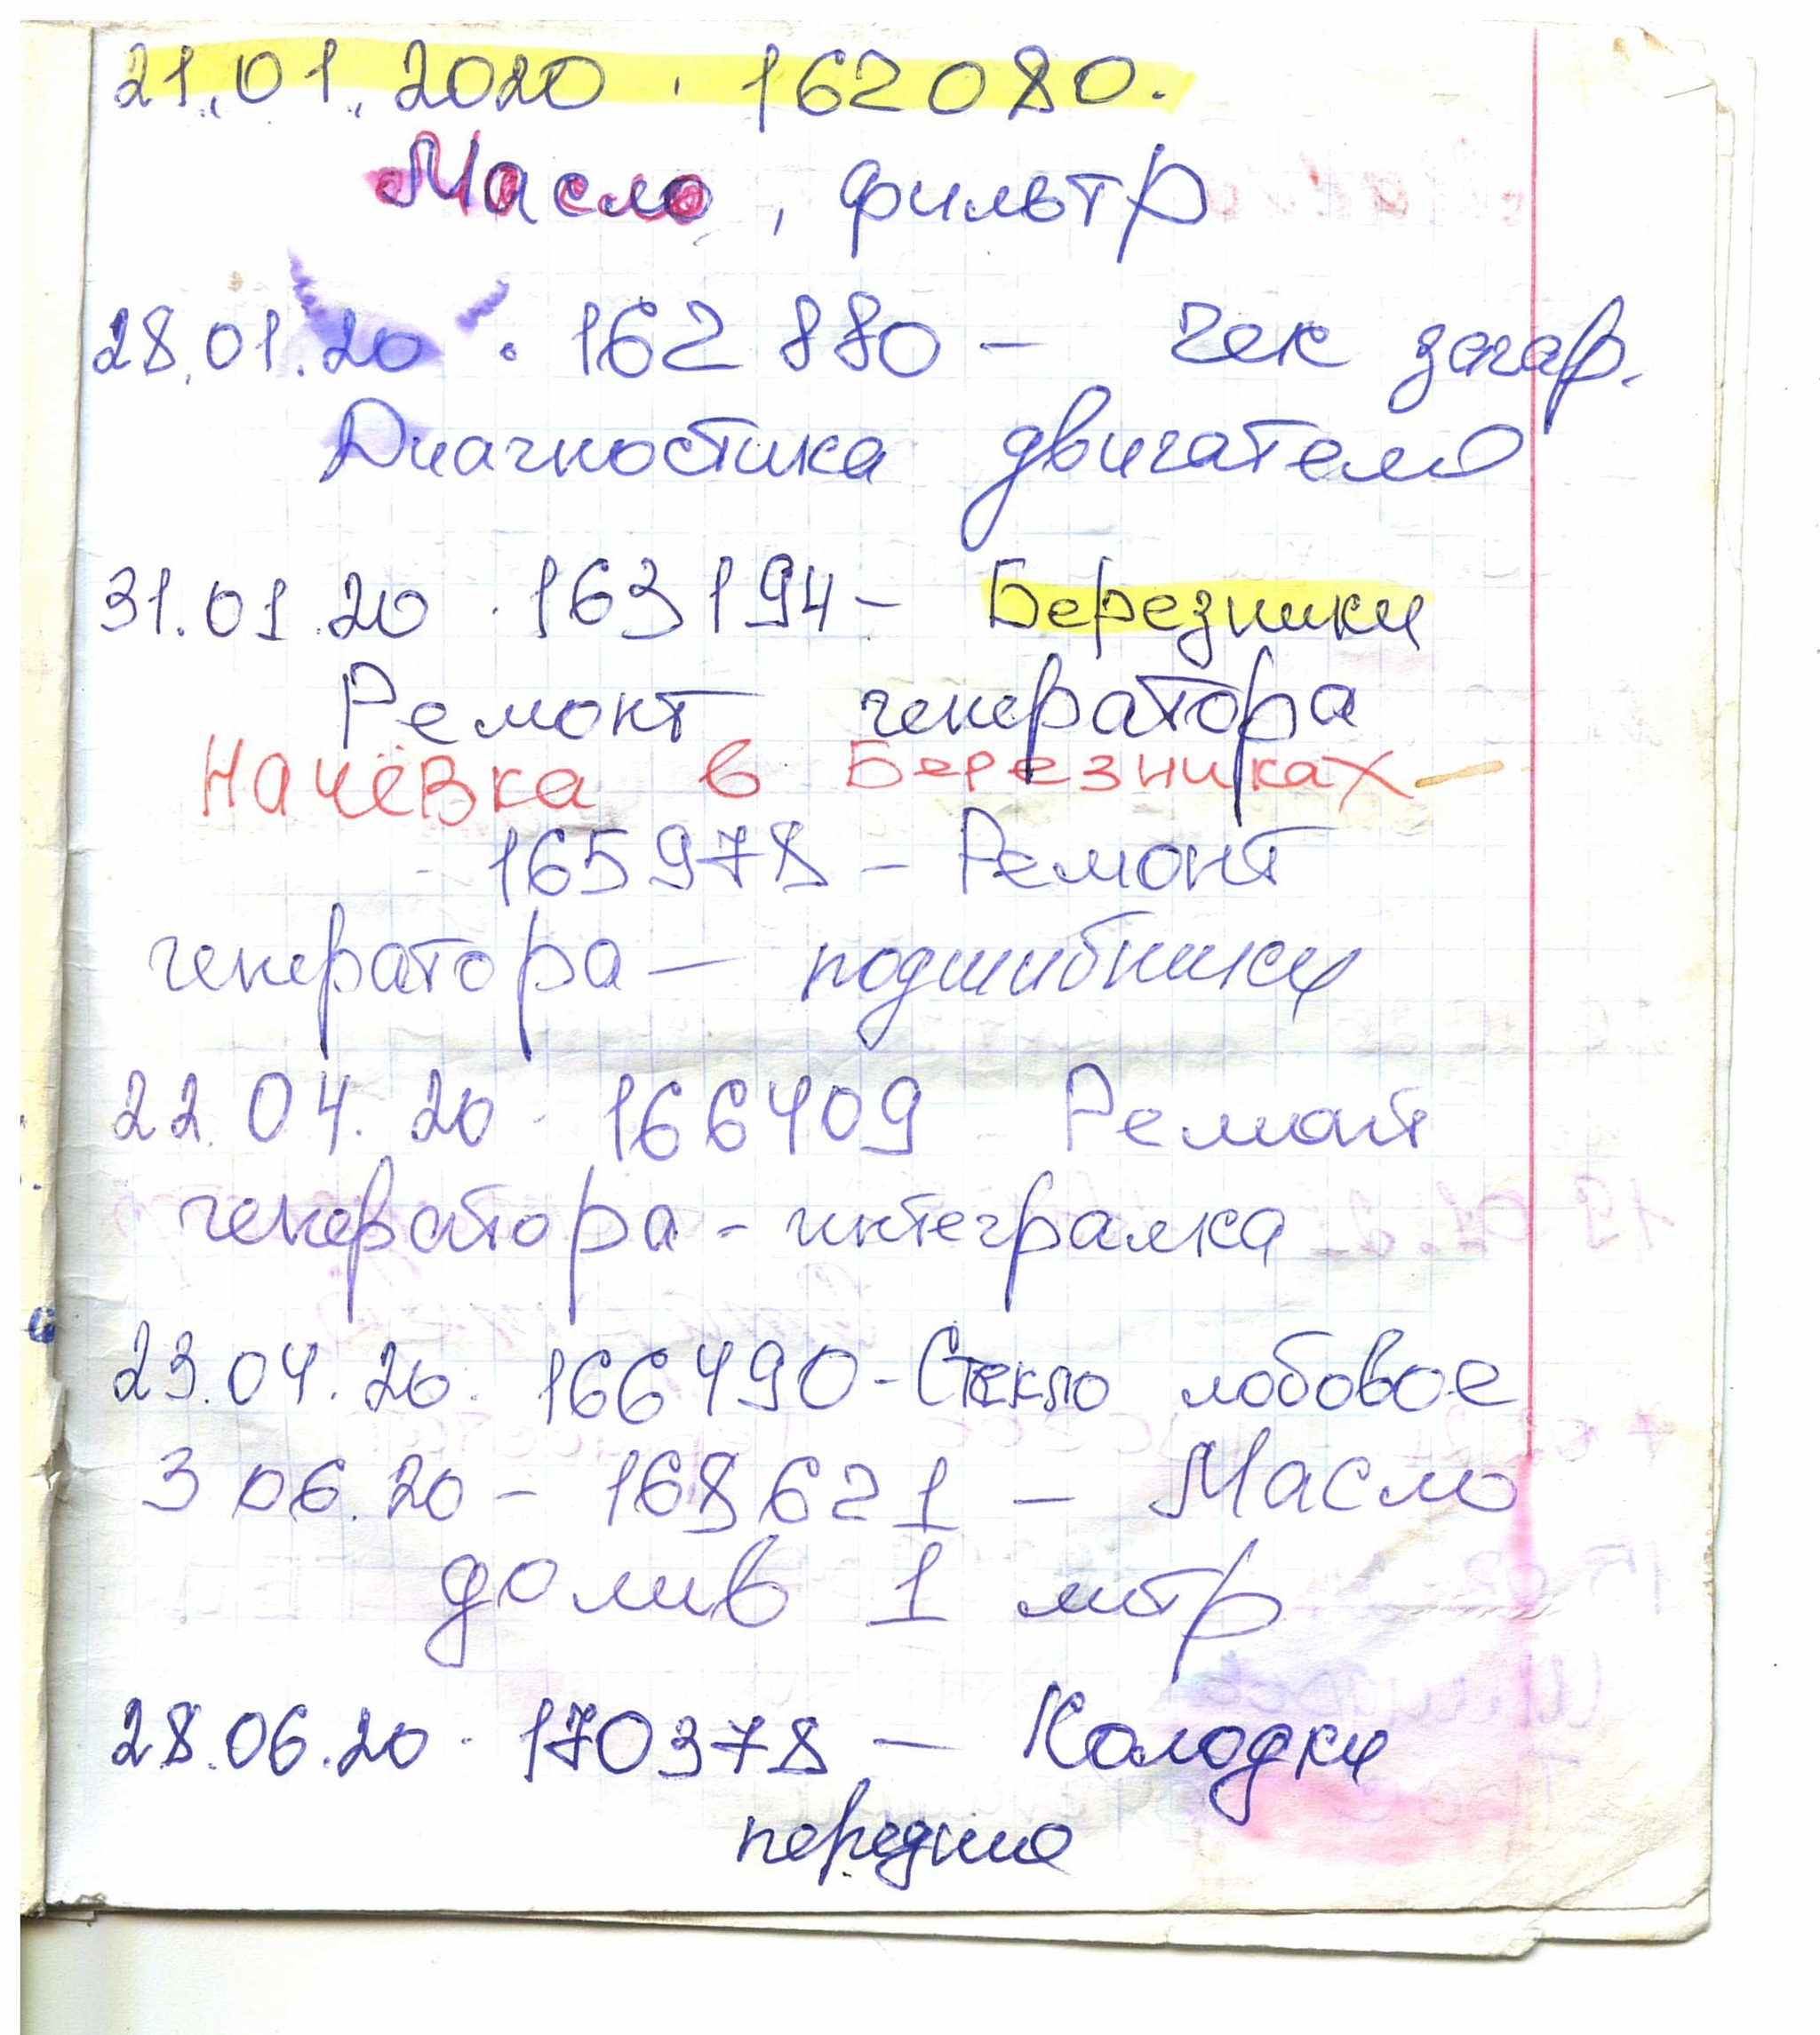 21.01.2020. 162080.
Масло, фильтр
28.01.20. 162 880 – Чек загар.
Диагностика двигателя
31.01.20. 163194 – Березники
Ремонт генератора
Начёвка в Березниках –
- 165978 – Ремонт
генератора – подшибники
22.04.20. 166409 Ремонт
генератора - интегралка
23.04.20. 166490 - Стекло лобовое
3 06.20 - 168621 – Масло
долив 1 литр
28.06.20. 170378 – Колодки
передние